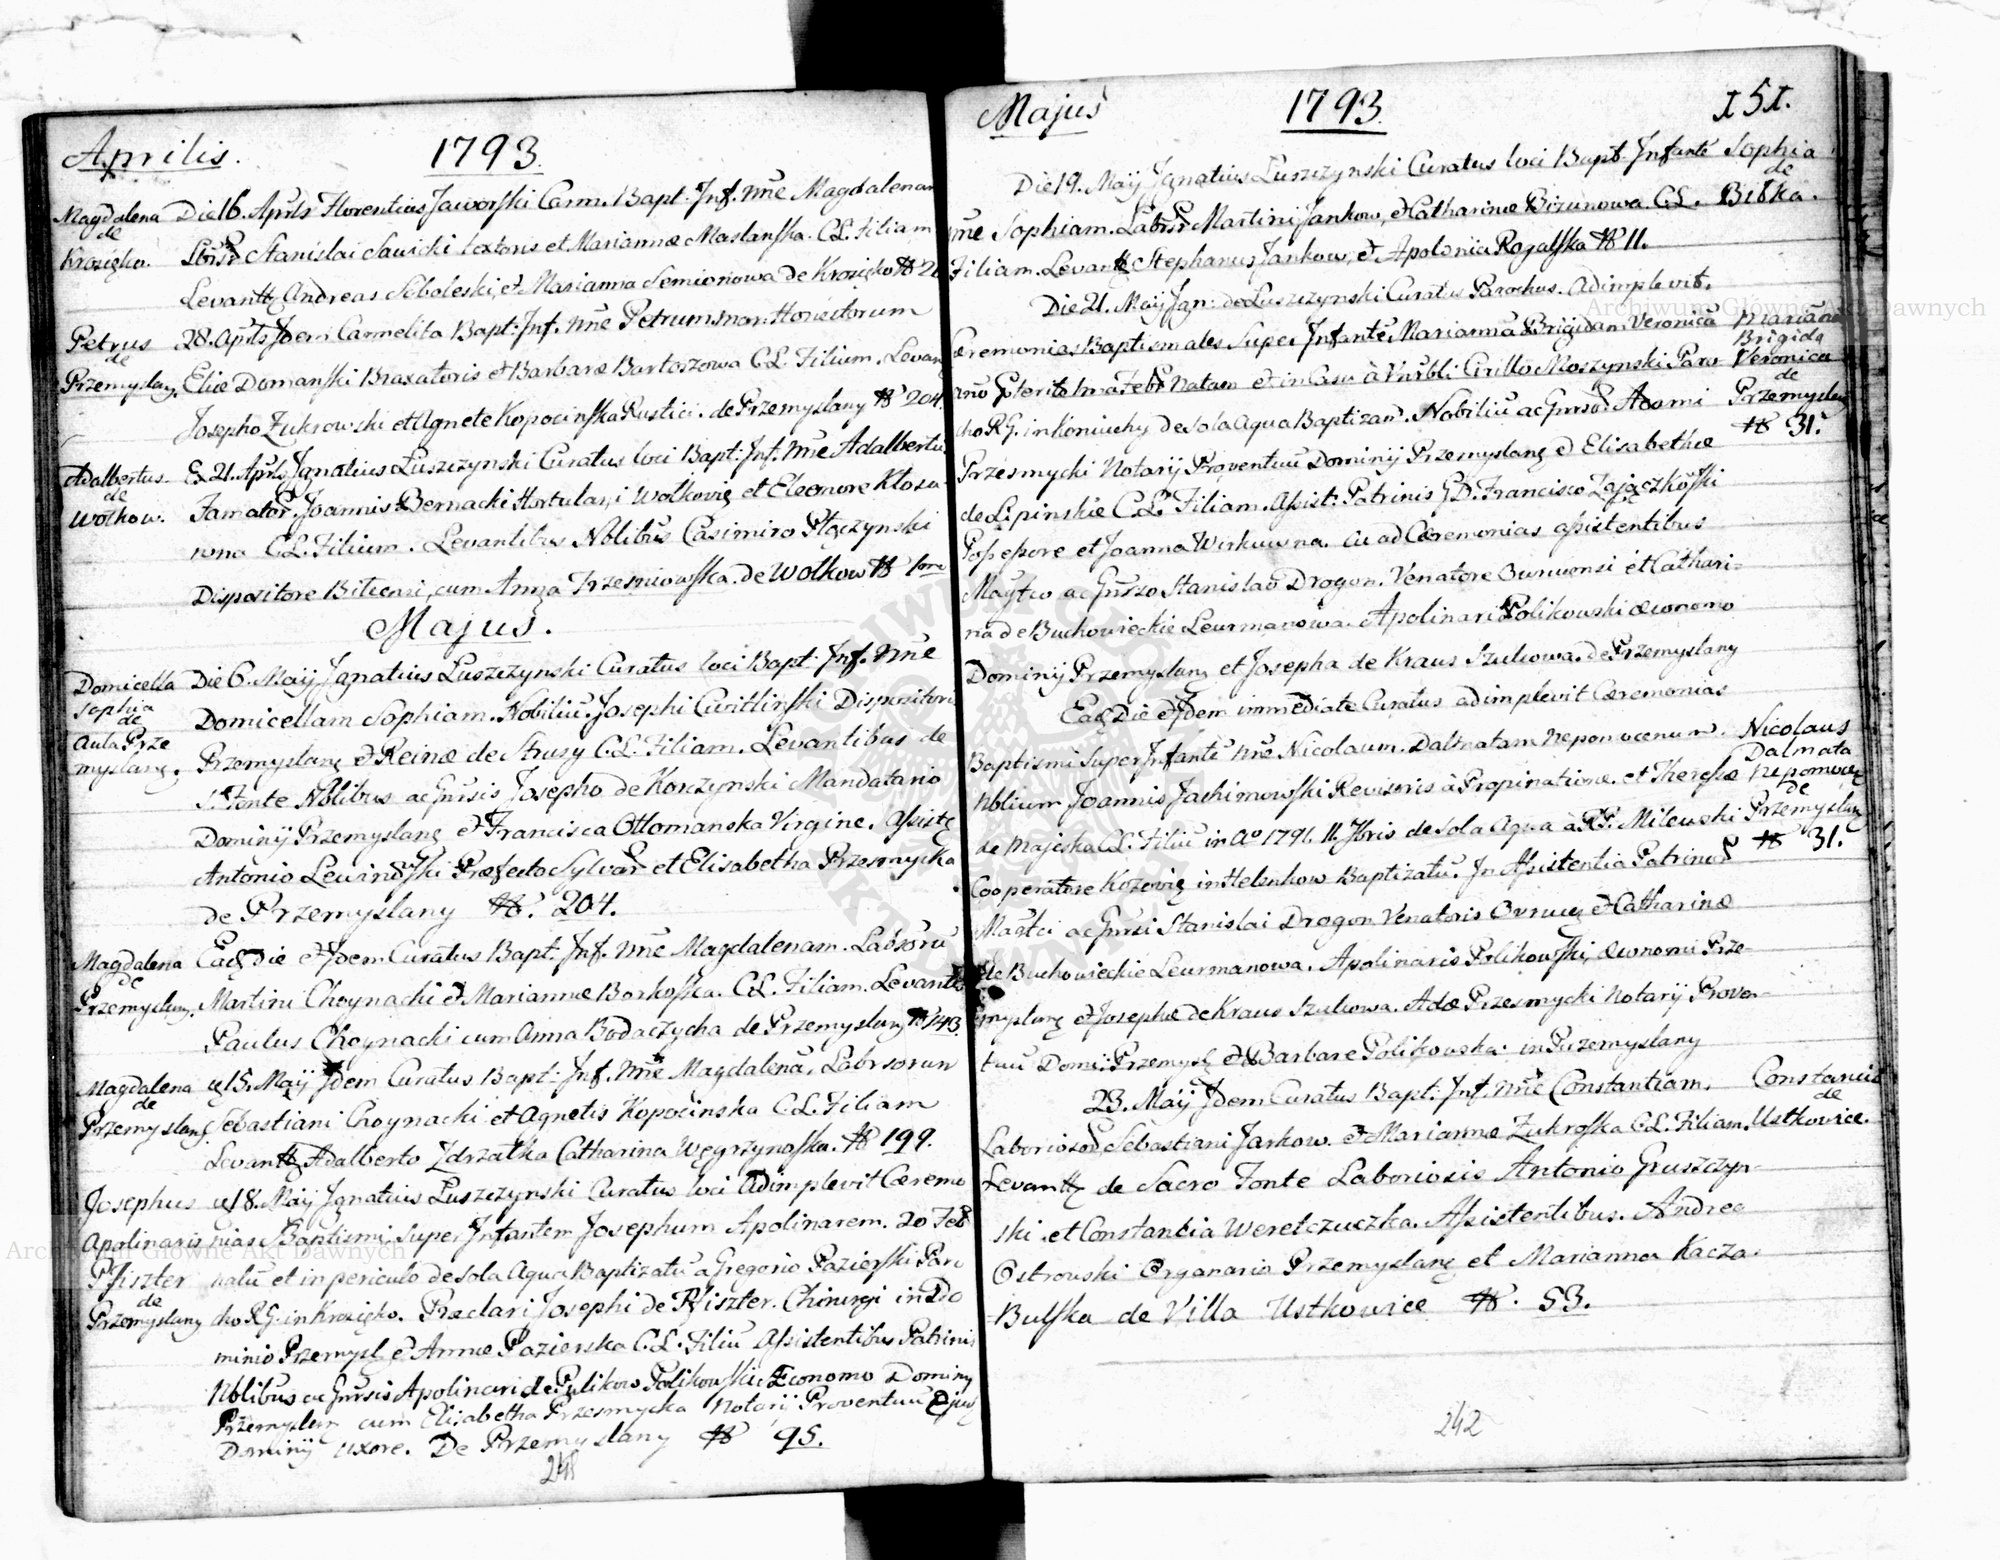 Aprilis. 1793.
Magdalena de Krosięko.
Die 16. Aprlis Florentius Jaworski Carm. Bapt: Inf. nne Magdalenam
Stanislai Sawicki textoris et Mariannæ Maslanska. C.L. Filiam
Levantt Andreas Soboleski, et Marianna Semionowa de Krosięko № 2
Petrus de Przemyslany.
28. Aprlis Idem Carmelita Bapt: Inf. nne Petrum Honestorum
Eliæ Domanski Braxatoris et Barbaræ Bartoszowa C.L. Filium. Levan
Josepho Zukrowski et Agnete Kopocinska Rustici. de Przemyslany № 204.
Adalbertus de Wolkow.
21. Aprlis Ignatius Luszczynski Curatus loci Bapt: Inf. nne Adalbertū
Famator Joannis Bernacki Hortulani Wolkovię et Eleonore Kloso
wna C.L. Filium. Levantibus Noblibus Casimiro Ptączynski
Dispozitore Bitcensi, cum Anna Trzesniowska. de Wolkow №
Majus.
Domicella Sophia de Aula Przemyslanę.
Die 6. Maij Ignatius Luszczynski Curatus loci Bapt: Inf. nne
Domicellam Sophiam. Nobiliū Josephi Cwitlinski Dispositoris
Przemyslanę et Reinæ de Strusy C.L. Filiam. Levantibus de
S. Fonte Noblibus ac Gnrsis Josepho de Korczynski Mandatario
Dominij Przemyslanę et Francisca Ottomanska Virgine. Assistę
Antonio Lewindski Præfecto Sylvar et Elisabetha Przesmycka
de Przemyslany №. 204.
Magdalena de Przemyslany.
Eadę Die et Idem Curatus Bapt. Inf. nne Magdalenam. Labsorū
Martini Choynacki et Mariannæ Borkosska. C.L. Filiam. Levantes
Paulus Choynacki cum Anna Bodaczycha de Przemyslany № 143
Magdalena de Przemyslanę
15. Maij Idem Curatus Bapt: Inf. nne Magdalenā, Labrsorum
Sebastiani Choynacki et Agnetis Kopocinska C.L. Filiam
Levantt Adalberto Zdrzałka Catharina Węgrzynosska. № 199.
Josephus Apolinaris Pfiszter de Przemyslany
18. Maij Ignatius Luszczynski Curatus loci Adimplevit Cæremo
nias Baptismi, super Infantem Josephum Apolinarem. 20 Feb
natū et in periculo de sola Aqua Baptizatū a Gregorio Pazierski Paro
cho R.G. in Krosięko. Præclari Josephi de Pfiszter. Chirurgi in Do
minio Przemysl et Annæ Pazierska C.L. Filiū Assistentibus Patrinis
Noblibus ac Gnrsis Apolinari de Pulikow Polikowski Economo Dominij
Przemyslany cum Elisabetha Przesmycka Notarij Proventuū Ejus
Dominij uxore. De Przemyslany № 95.
Majus 1793. 151.
Die 19. Maij Ignatius Luszczynski Curatus loci Bapt. Infantē
nne Sophiam. Martini Jankow, et Catharinæ Bizunowa. C.L.
Filiam. Levantt Stephanus Jankow, et Apolonia Rogalska № 11.
Sophia de Bitka.
Die 21. Maij Ign: de Luszczynski Curatus Parochus. Adimplevit.
Cæremonias Baptismales Super Infantē, Mariannā Brigidam Veronicā
Natam et in Casu à Cirillo Moszynski Paro
cho R.G. in Koniuchy de sola Aqua Baptizar. Nobiliū ac Gnrsor Adami
Przesmycki Notarij Proventuū Dominij Przemyslanę et Elisabethæ
de Lipinskie C.L. Filiam. Assist: Patrinis G.D. Francisco Zajączkowski
Possessore et Joanna Wirkuwna. ad Cæremonias assistentibus
ac Gnrsso Stanislao Drogon. Venatore et Cathari=
na de Buchowieckie Leurmanowa. Apolinari Polikowski œconomo
Dominij Przemyslanę et Josepha de Kraus Szulcowa. de Przemyslany
Marianna Brigida Veronica de Przemyslany № 31.
Eadę Die et Idem immediate Curatus adimplevit Cæremonias
Baptismi super Infantē nne Nicolaum. Dalmatam Nepomucenum.
Nblium Joannis Jachimowski Revisoris à Propinatione. et Theresæ
de Majeska C.L. Filiū in Ao 1791. 11. 7bris de sola Aqua à R.P. Milewski
Cooperatore Kozovię in Helenkow Baptizatū. In Assistentia Patrinor
ac Gnrsi Stanislai Drogon Venatoris et Catharinæ
de Buchowieckie Leurmanowa. Apolinaris Polikowski, œconomi Prze-
myslanę et Josephæ de Kraus Szulcowa. Adæ Przesmycki Notarij Proven-
tuū Domi: Przemysl et Barbare Polikowska in Przemyslany
Nicolaus Dalmata Nepomucę De Przemyslany № 31.
23. Maij Idem Curatus Bapt: Inf. nne Constantiam.
Laboriosor Sebastiani Jarkow. et Mariannæ Zukrosska C.L. Filiam.
Levantt de Sacro Fonte Laboriosis Antonio Gruszczyn-
ski. et Constancia Weretczuczka. Assistentibus. Andrea
Ostrowski Organario Przemyslanę et Marianna Kacza-
Bulska de Villa Ustkowice №. 53.
Constancia de Ustkowice.
242
Archiwum Główne Akt Dawnych
Archiwum Główne Akt Dawnych